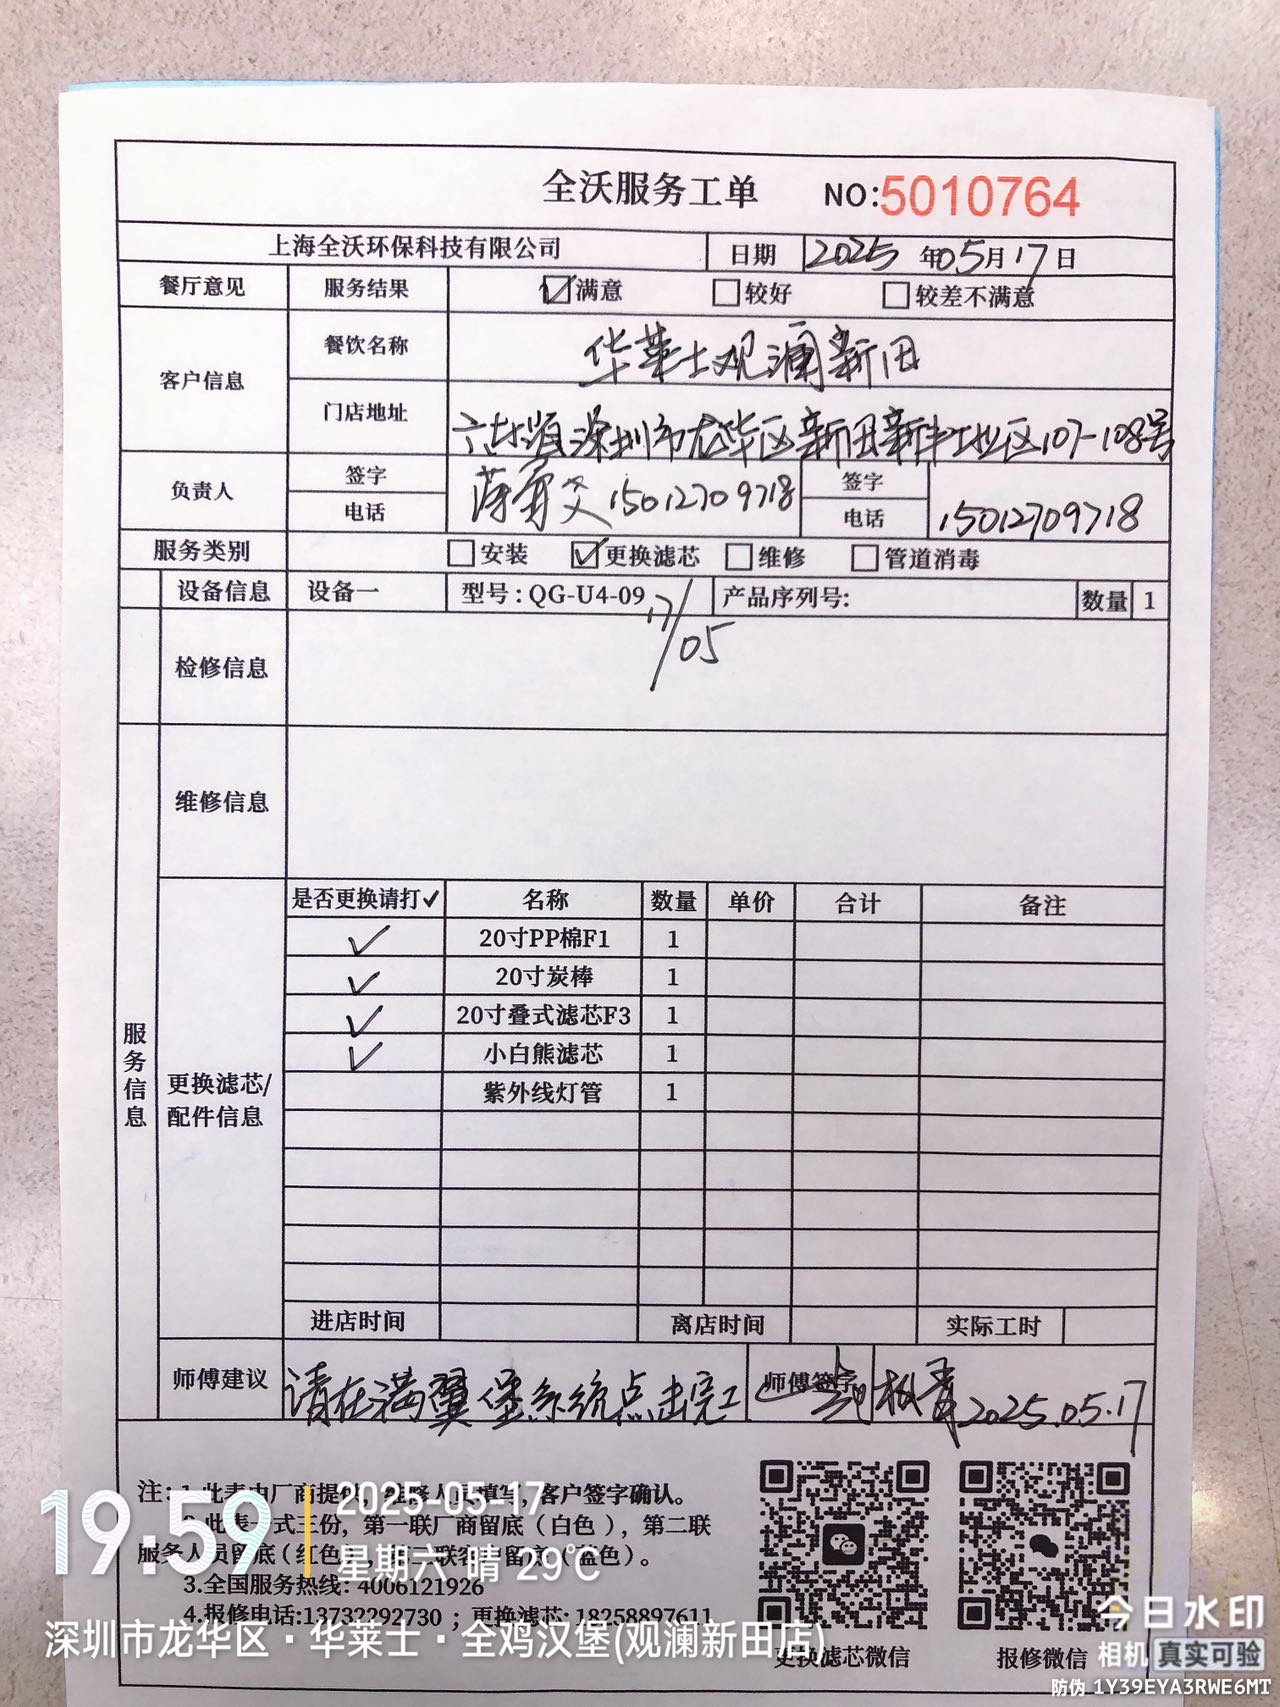 全沃服务工单 NO:5010764
上海全沃环保科技有限公司 日期 2025年05月17日
餐厅意见 服务结果 ☑满意 □较好 □较差不满意
客户信息 餐饮名称 华莱士观澜新田
门店地址 深圳市龙华区新田新丰工业区107-108号
负责人 签字 15012709718 签字
电话 电话 15012709718
服务类别 □安装 ☑更换滤芯 □维修 □管道消毒
设备信息 设备一 型号:QG-U4-09 产品序列号: 数量 1
17/05
检修信息
维修信息
服务信息
更换滤芯/
配件信息
是否更换请打✓ 名称 数量 单价 合计 备注
✓ 20寸PP棉F1 1
✓ 20寸炭棒 1
✓ 20寸叠式滤芯F3 1
✓ 小白熊滤芯 1
紫外线灯管 1
进店时间 离店时间 实际工时
师傅建议 请在满翼堡系统点击完工 师傅签字 2025.05.17
注: 1.此表由厂商提供,维修人员填写,客户签字确认。
2.此表一式三份,第一联厂商留底(白色),第二联
服务人员留底(红色),第三联客户留底(蓝色)。
3.全国服务热线:4006121926
4.报修电话:13732292730 ; 更换滤芯:18258897611
更换滤芯微信 报修微信
19:59
2025-05-17
星期六 晴 29℃
深圳市龙华区·华莱士·全鸡汉堡(观澜新田店)
今日水印
相机 真实可验
防伪 1Y39EYA3RWE6MT